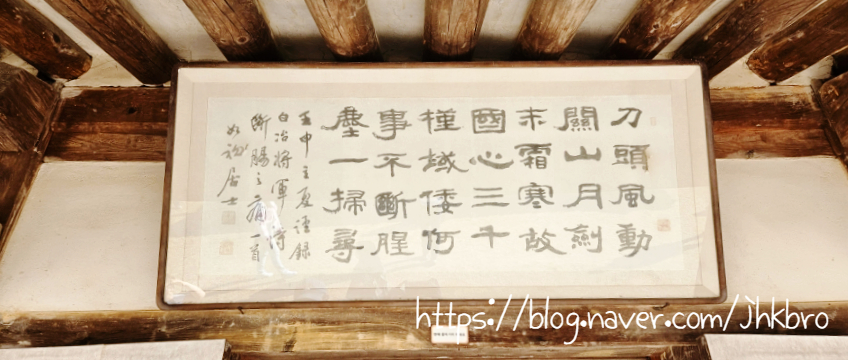 刀頭風動
關山月劍
末霜寒故
國心三千
槿域倭何
事不斷腥
塵一掃尋
壬申夏謹錄
白冶將軍詩
斷腸之痛一首
居士
https://blog.naver.com/jhkbro